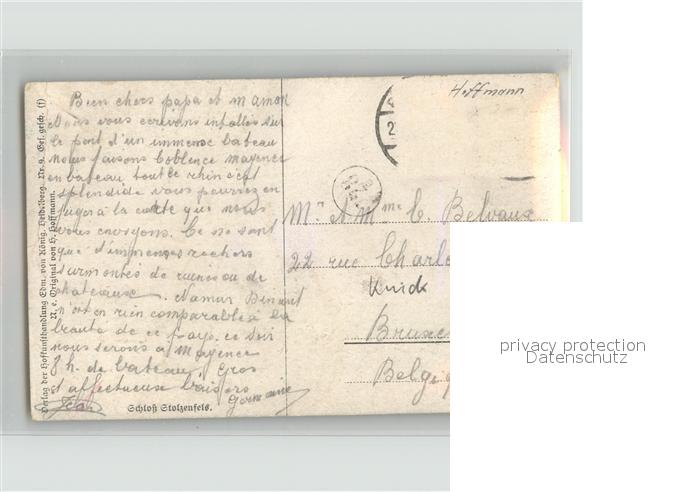 Bien chers papa et maman
Nous vous écrivons installés sur
le pont d'un immense bateau
nous faisons Coblence mayence
en bateau tout le rhin c'est
splendide vous pourrez en
juger à la carte que nous
vous envoyons. Ce ne sont
que d'immenses rochers
surmontés de ruines ou de
chateaux. Namur Dinant
n'est en rien comparable à la
beauté de ce pays. ce soir
nous serons à Mayence
8 h. de bateau. Gros
et affectueux baisers
Germaine
Jean
Schloß Stolzenfels.
Verlag der Hofkunsthandlung Edm. von König, Heidelberg. Nr. 9. Ges. gesch. (1)
N. e. Original von H. Hoffmann.
Hoffmann
Mr et Mme C. Belvaux
22 rue Charle
Knick
Bruxe
Belgiq
privacy protection
Datenschutz